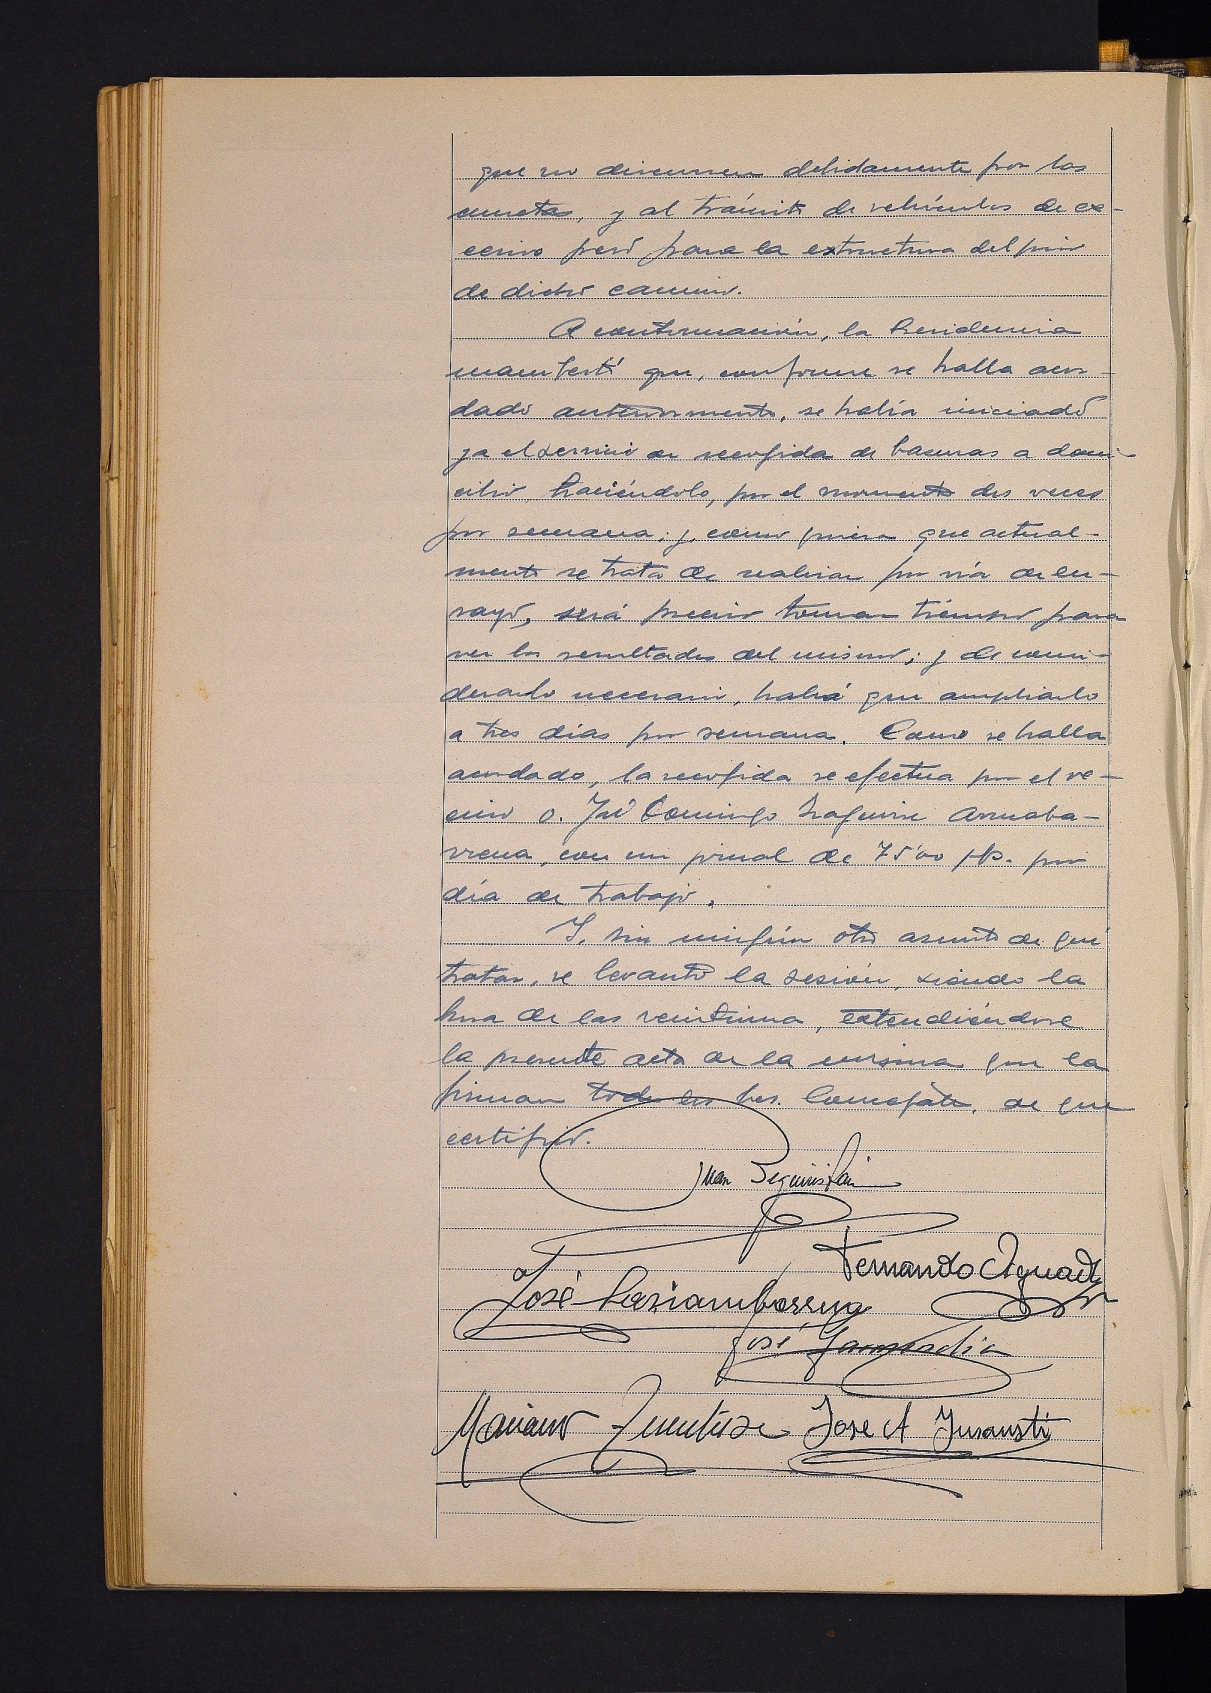 que no discurren debidamente por las
cunetas, y al tránsito de vehículos de ex-
cesivo peso para la estructura del piso
de dicho camino.
A continuación, la Presidencia
manifestó que, conforme se halla acor-
dado anteriormente, se había iniciado
ya el servicio de recogida de basuras a domi-
cilio haciéndolo, por el momento dos veces
por semana; y, como quiera que actual-
mente se trata de realizar por vía de en-
sayo, será preciso tomar tiempo para
ver los resultados del mismo; y de consi-
derarlo necesario, habrá que ampliarlo
a tres días por semana. Como se halla
acordado, la recogida se efectúa por el ve-
cino D. José Domingo Izaguirre Arruaba-
rrena, con un jornal de 75'00 pts. por
día de trabajo.
Y, sin ningún otro asunto de que
tratar, se levantó la sesión, siendo la
hora de las veintiuna, extendiéndose
la presente acta de la misma que la
firman todos los Sres. Concejales, de que
certifico.
Juan Beguiristain
Fernando Aguado
José
José Garmendia
Mariano
Jose A Insausti